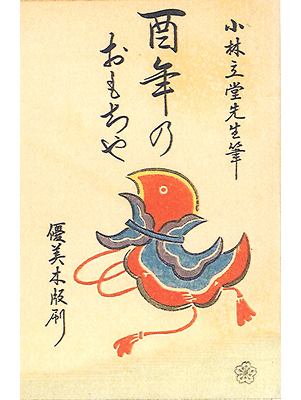 小林立堂先生筆
酉年の
おもちや
優美木版刷